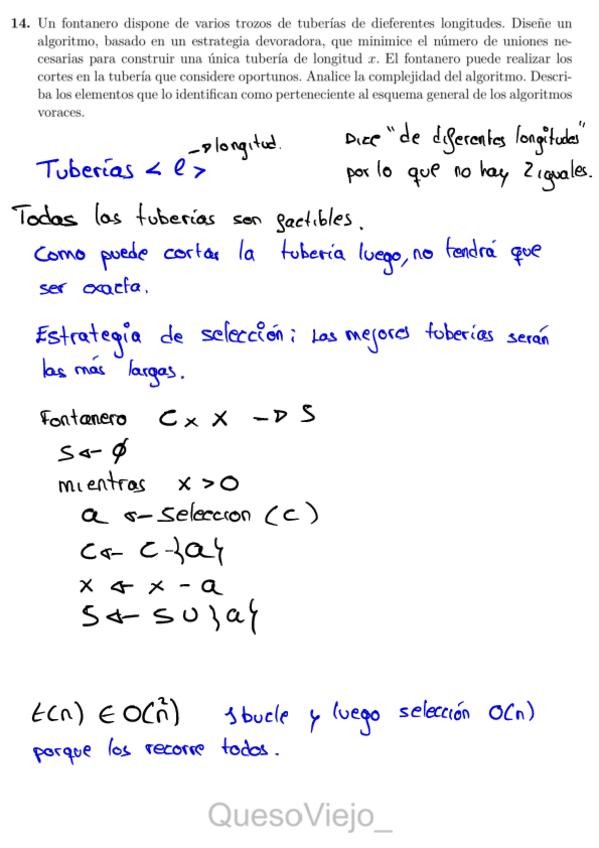 14. Un fontanero dispone de varios trozos de tuberías de dieferentes longitudes. Diseñe un
algoritmo, basado en un estrategia devoradora, que minimice el número de uniones ne-
cesarias para construir una única tubería de longitud x. El fontanero puede realizar los
cortes en la tubería que considere oportunos. Analice la complejidad del algoritmo. Descri-
ba los elementos que lo identifican como perteneciente al esquema general de los algoritmos
voraces.
→ longitud.
Tuberías < l >
Dice "de diferentes longitudes"
por lo que no hay 2 iguales.
Todas las tuberías son factibles.
Como puede cortar la tubería luego, no tendrá que
ser exacta.
Estrategia de selección: Las mejores tuberías serán
las más largas.
Fontanero C x X → S
S ← ∅
mientras x > 0
a ← Seleccion (C)
C ← C - }a{
x ← x - a
S ← S ∪ }a{
t(n) ∈ O(n²) 1 bucle y luego selección O(n)
porque los recorre todos.
QuesoViejo_